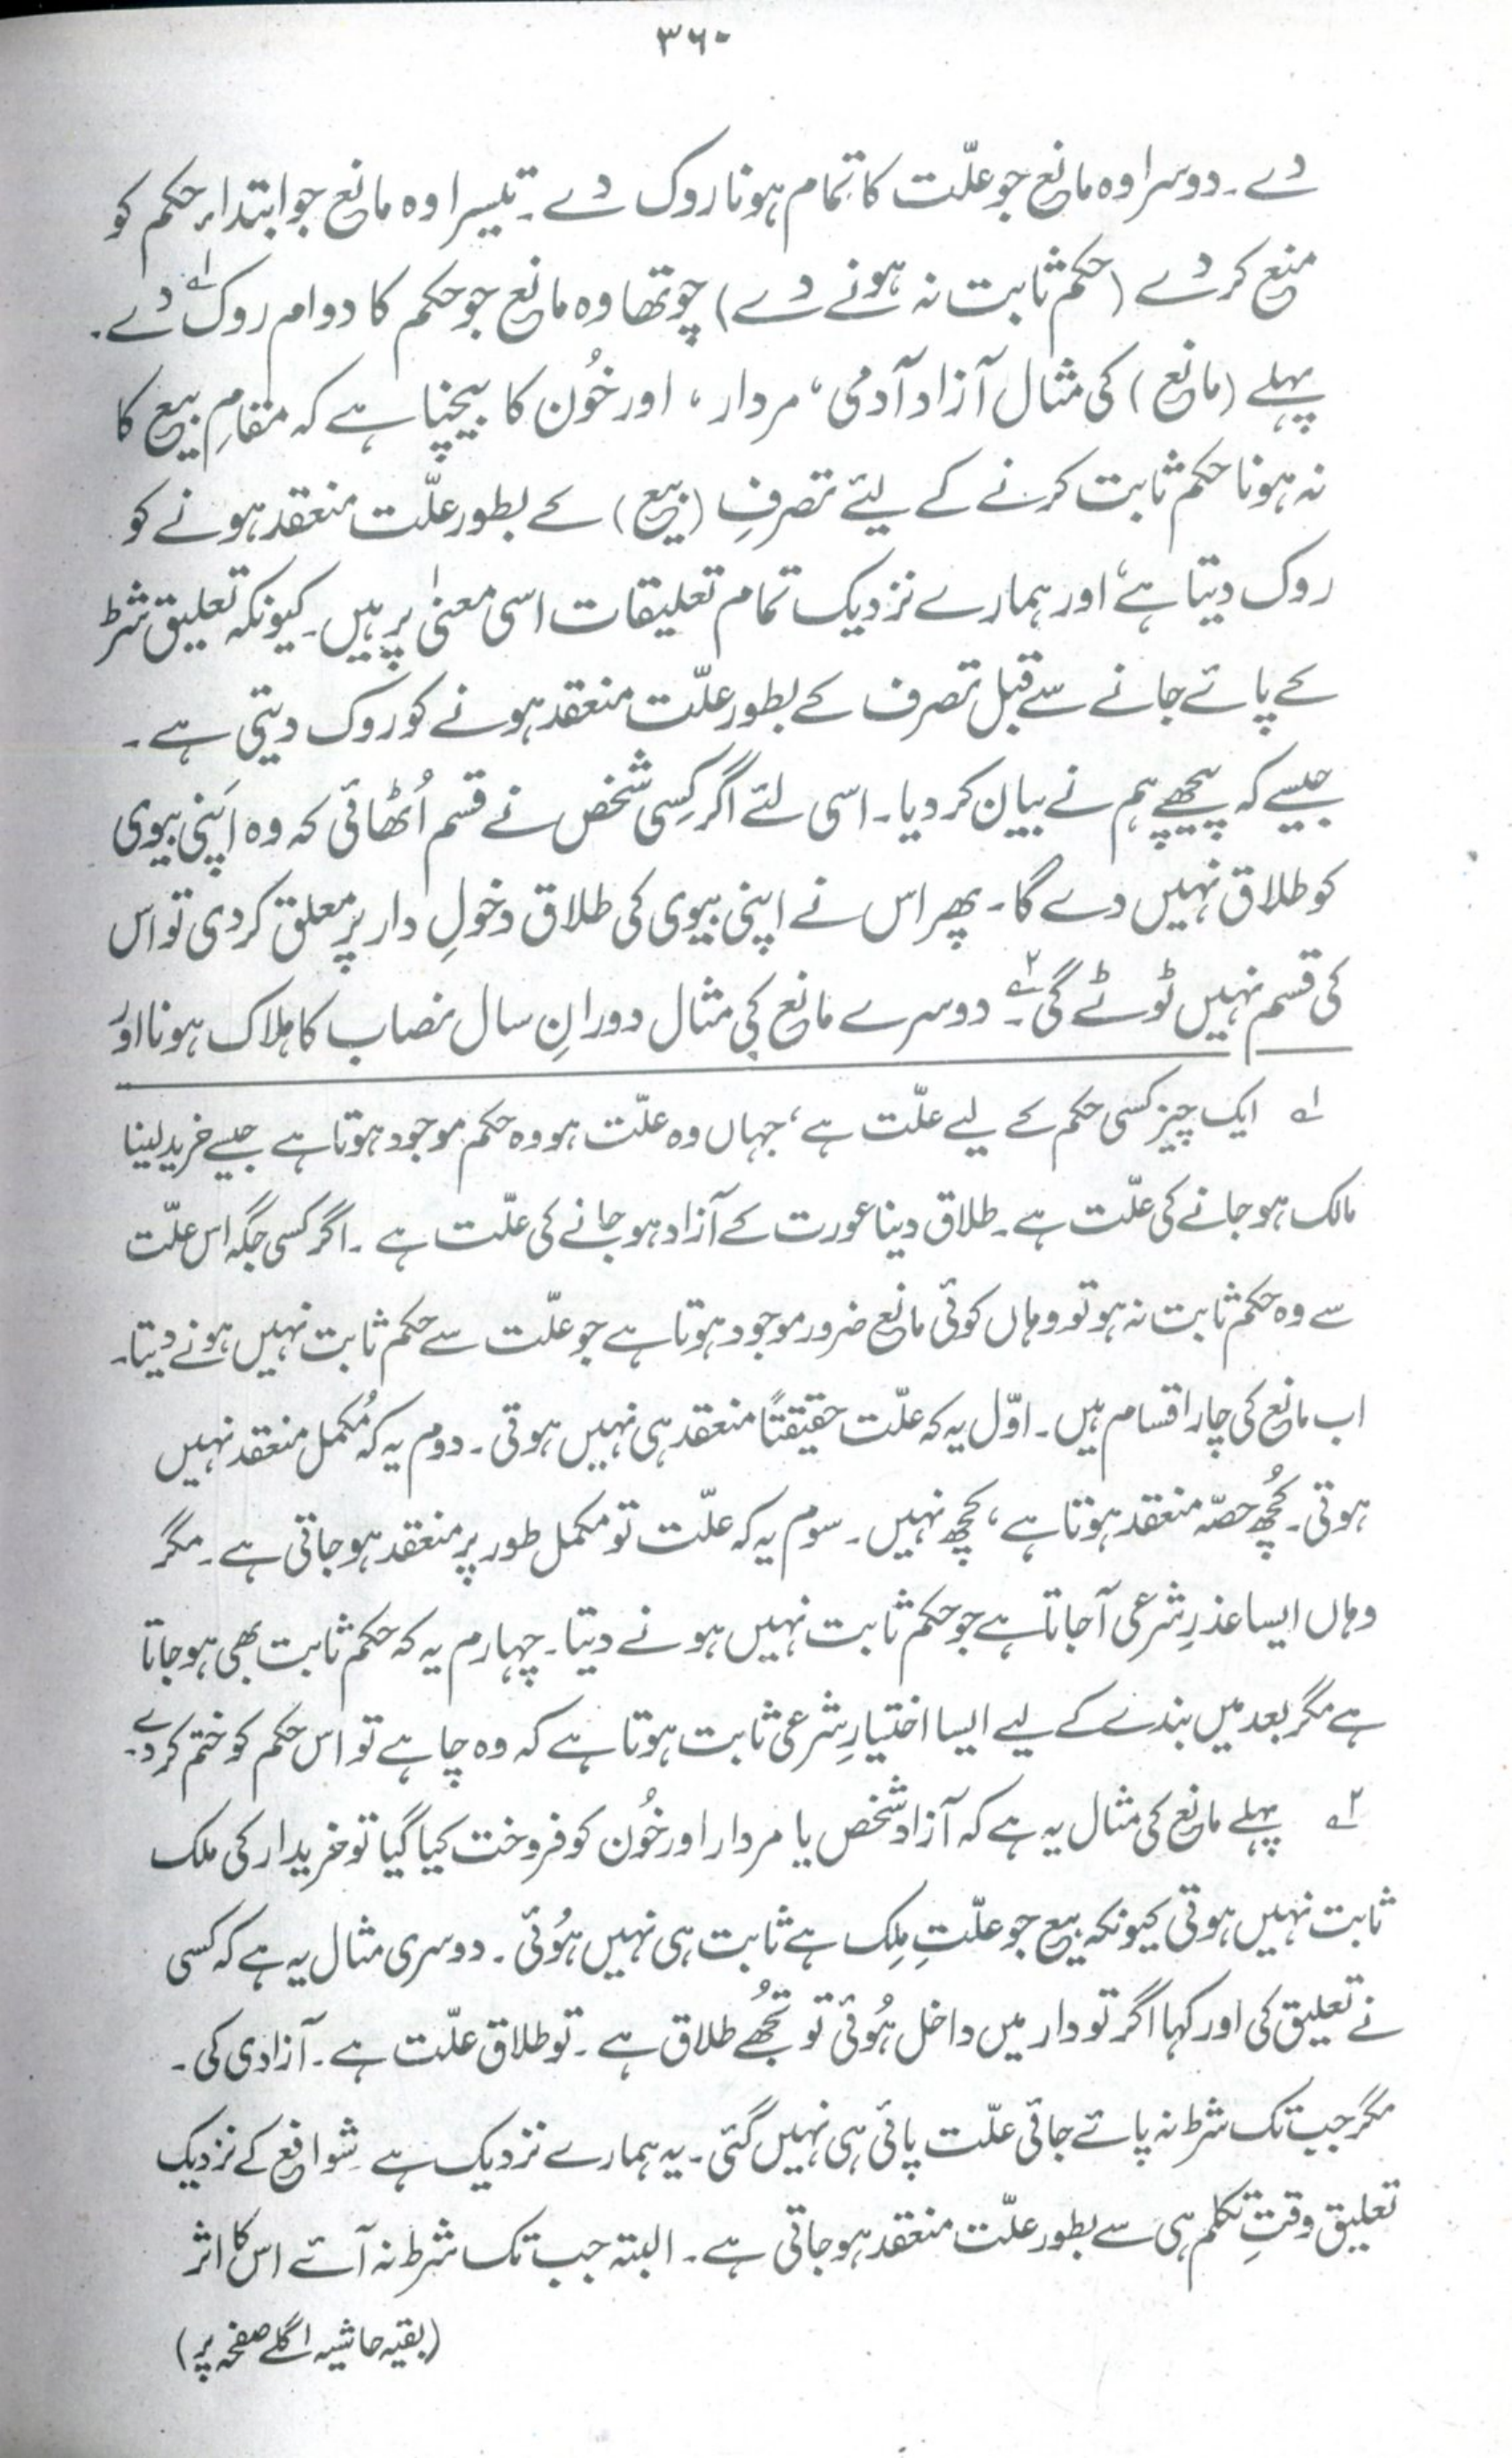 ۳۶۰
دے۔ دوسرا وہ مانع جو علّت کا تمام ہونا روک دے۔ تیسرا وہ مانع جو ابتداءِ حکم کو
منع کر دے (حکم ثابت نہ ہونے دے) چوتھا وہ مانع جو حکم کا دوام روک ۱؎ دے۔
پہلے (مانع) کی مثال آزاد آدمی، مردار، اور خُون کا بیچنا ہے کہ مقامِ بیع کا
نہ ہونا حکم ثابت کرنے کے لیئے تصرفِ (بیع) کے بطور علّت منعقد ہونے کو
روک دیتا ہے، اور ہمارے نزدیک تمام تعلیقات اسی معنیٰ پر ہیں۔ کیونکہ تعلیق شرط
کے پائے جانے سے قبل تصرف کے بطور علّت منعقد ہونے کو روک دیتی ہے۔
جیسے کہ پیچھے ہم نے بیان کر دیا۔ اسی لئے اگر کِسی شخص نے قسم اُٹھائی کہ وہ اَپنی بیوی
کو طلاق نہیں دے گا۔ پھر اس نے اپنی بیوی کی طلاق دخولِ دار پر معلق کر دی تو اس
کی قسم نہیں ٹوٹے گی ۲؎۔ دوسرے مانع کی مثال دورانِ سال نصاب کا ہلاک ہونا اور
۱؎ ایک چیز کسی حکم کے لیے علّت ہے، جہاں وہ علّت ہو وہ حکم موجود ہوتا ہے جیسے خرید لینا
مالک ہو جانے کی علّت ہے۔ طلاق دینا عورت کے آزاد ہو جانے کی علّت ہے۔ اگر کسی جگہ اس علّت
سے وہ حکم ثابت نہ ہو تو وہاں کوئی مانع ضرور موجود ہوتا ہے جو علّت سے حکم ثابت نہیں ہونے دیتا۔
اب مانع کی چار اقسام ہیں۔ اوّل یہ کہ علّت حقیقتًا منعقد ہی نہیں ہوتی۔ دوم یہ کہ مُکمل منعقد نہیں
ہوتی۔ کُچھ حصّہ منعقد ہوتا ہے، کچھ نہیں۔ سوم یہ کہ علّت تو مکمل طور پر منعقد ہو جاتی ہے۔ مگر
وہاں ایسا عذرِ شرعی آ جاتا ہے جو حکم ثابت نہیں ہونے دیتا۔ چہارم یہ کہ حکم ثابت بھی ہو جاتا
ہے مگر بعد میں بندے کے لیے ایسا اختیارِ شرعی ثابت ہوتا ہے کہ وہ چاہے تو اس حکم کو ختم کر دے۔
۲؎ پہلے مانع کی مثال یہ ہے کہ آزاد شخص یا مردار اور خُون کو فروخت کیا گیا تو خریدار کی ملک
ثابت نہیں ہوتی کیونکہ بیع جو علّتِ مِلک ہے ثابت ہی نہیں ہُوئی۔ دوسری مثال یہ ہے کہ کسی
نے تعلیق کی اور کہا اگر تو دار میں داخل ہُوئی تو تُجھے طلاق ہے۔ تو طلاق علّت ہے۔ آزادی کی۔
مگر جب تک شرط نہ پائے جائی علّت پائی ہی نہیں گئی۔ یہ ہمارے نزدیک ہے شوافع کے نزدیک
تعلیق وقتِ تکلم ہی سے بطور علّت منعقد ہو جاتی ہے۔ البتہ جب تک شرط نہ آئے اس کا اثر
(بقیہ حاشیہ اگلے صفحہ پر)